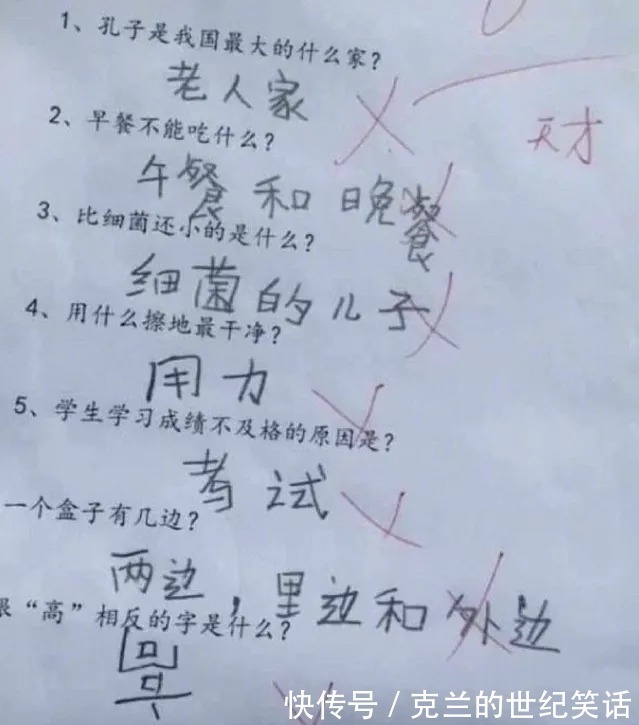 1、孔子是我国最大的什么家?
老人家
天才
2、早餐不能吃什么?
午餐和晚餐
3、比细菌还小的是什么?
细菌的儿子
4、用什么擦地最干净?
用力
5、学生学习成绩不及格的原因是?
考试
一个盒子有几边?
两边,里边和外边
“高”相反的字是什么?
快传号/克兰的世纪笑话